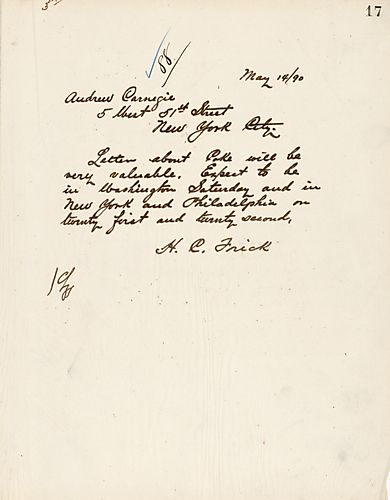 17
88
May 14/90
Andrew Carnegie
5 West 51st Street
New York City
Letter about Coke will be
very valuable. Expect to be
in Washington Saturday and in
New York and Philadelphia on
twenty first and twenty second,
H. C. Frick